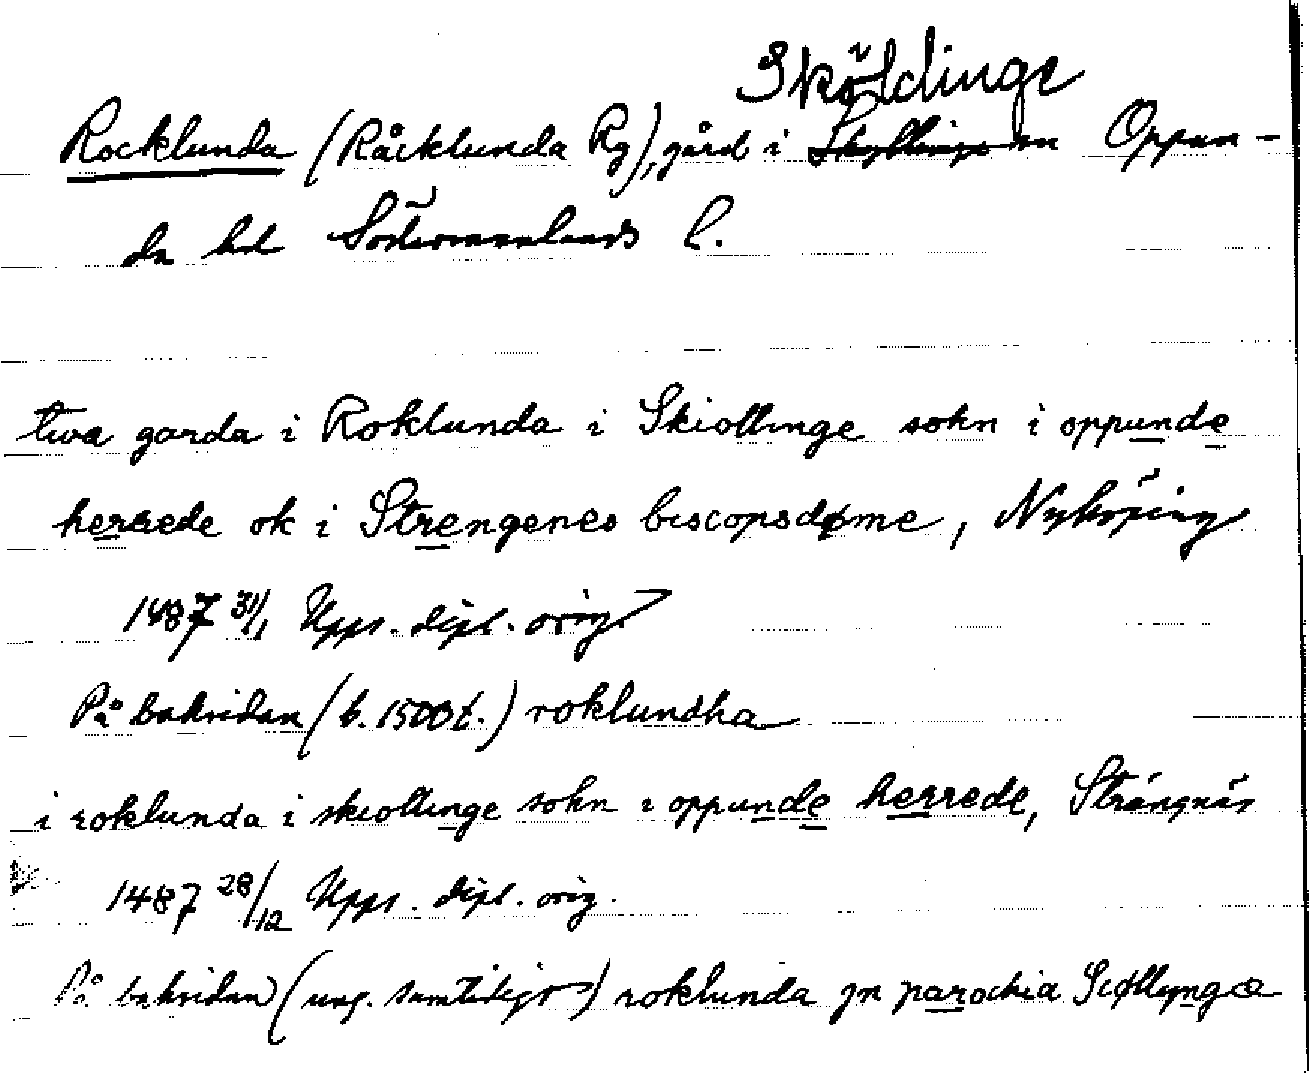 Sköldinge
Rocklunda (Råcklunda Rg), gård i Skyllinge sn Oppun-
da hd Södermanlands l.
twa garda i Roklunda i Skiollinge sokn i oppunde
herrede ok i Strengenes biscopsdøme, Nyköping
1487 31/1 Upps. dipl. orig
På baksidan (b. 1500 t.) roklundha
i roklunda i skiollinge sokn i oppunde herrede, Strängnäs
1487 28/12 Upps. dipl. orig.
På baksidan (ung. samtidigt) roklunda jn parochia Sciøllyngæ